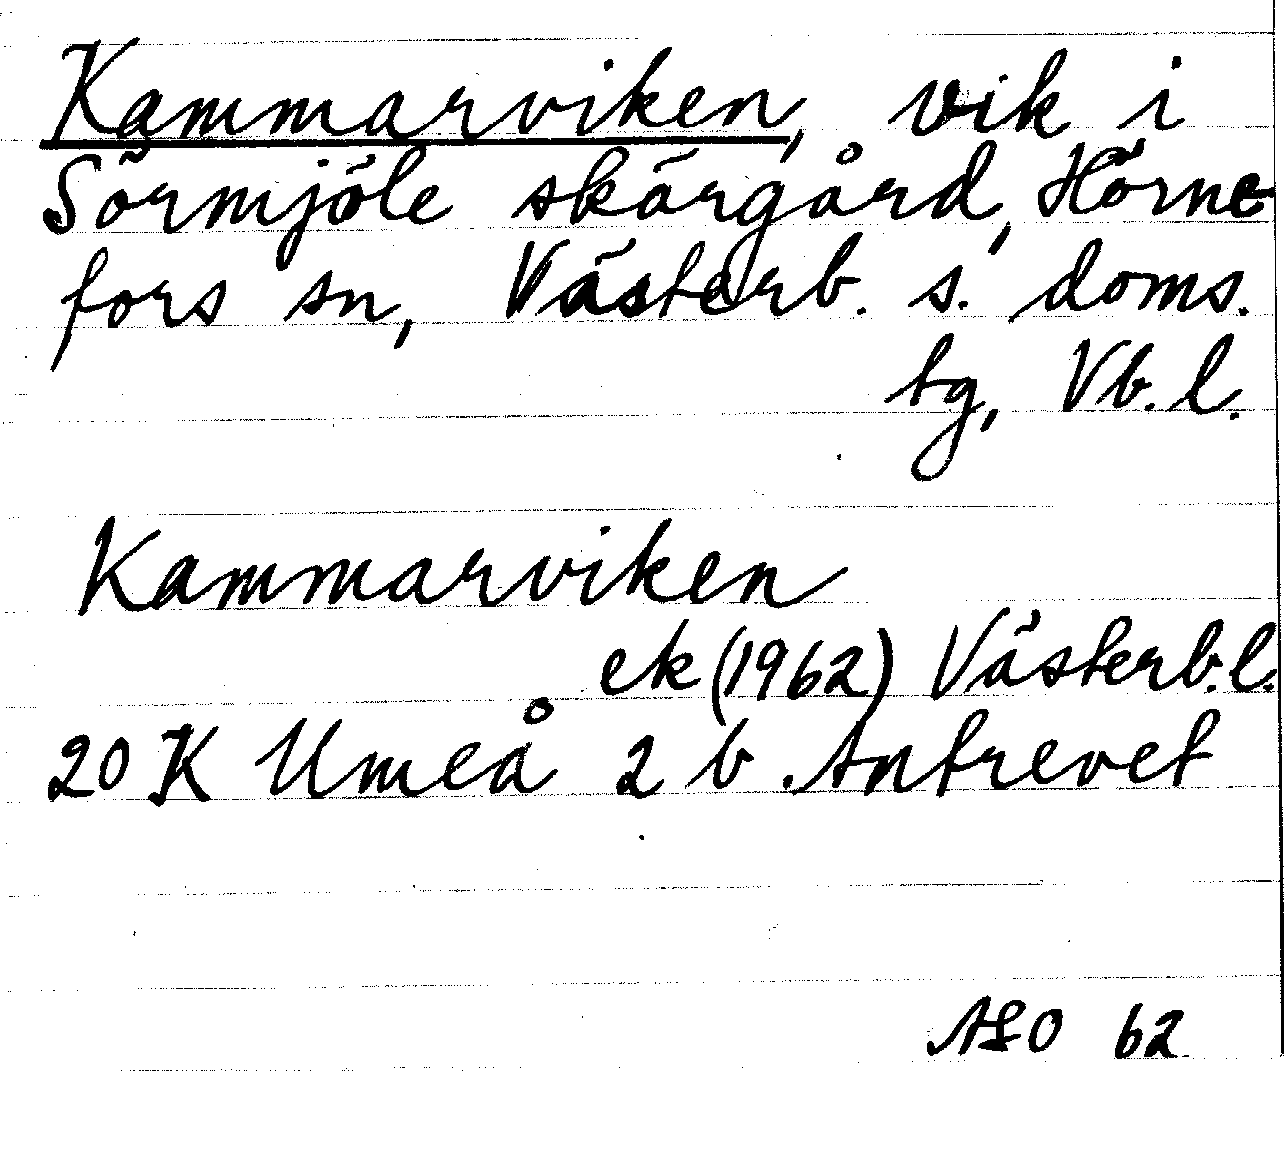 Kammarviken, vik i
Sörmjöle skärgård, Hörne
fors sn, Västerb. s. doms.
tg, Vb. l.
Kammarviken
ek (1962) Västerb. l.
20 K Umeå 2 b Antrevet
62